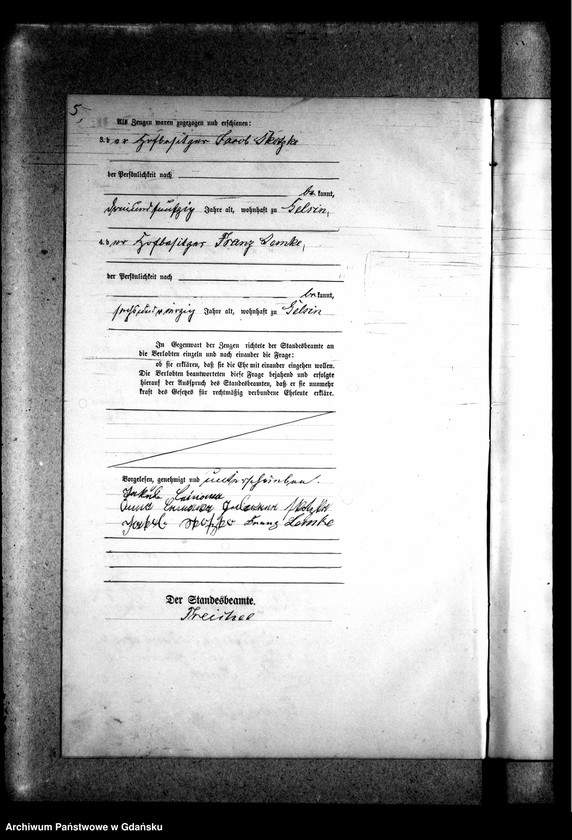 5,
Als Zeugen waren zugezogen und erschienen:
3. der Hofbesitzer Jacob Skotzke
der Persönlichkeit nach
be kannt,
dreiundfünfzig Jahre alt, wohnhaft zu Gelsin,
4. der Hofbesitzer Franz Lemke,
der Persönlichkeit nach
be kannt,
sechsundvierzig Jahre alt, wohnhaft zu Gelsin
In Gegenwart der Zeugen richtete der Standesbeamte an
die Verlobten einzeln und nach einander die Frage:
ob sie erklären, daß sie die Ehe mit einander eingehen wollen.
Die Verlobten beantworteten diese Frage bejahend und erfolgte
hierauf der Ausspruch des Standesbeamten, daß er sie nunmehr
kraft des Gesetzes für rechtmäßig verbundene Eheleute erkläre.
Vorgelesen, genehmigt und unterschrieben.
Jakob
Anna
Jakob Franz Lemke
Der Standesbeamte.
Treichel
Archiwum Państwowe w Gdańsku